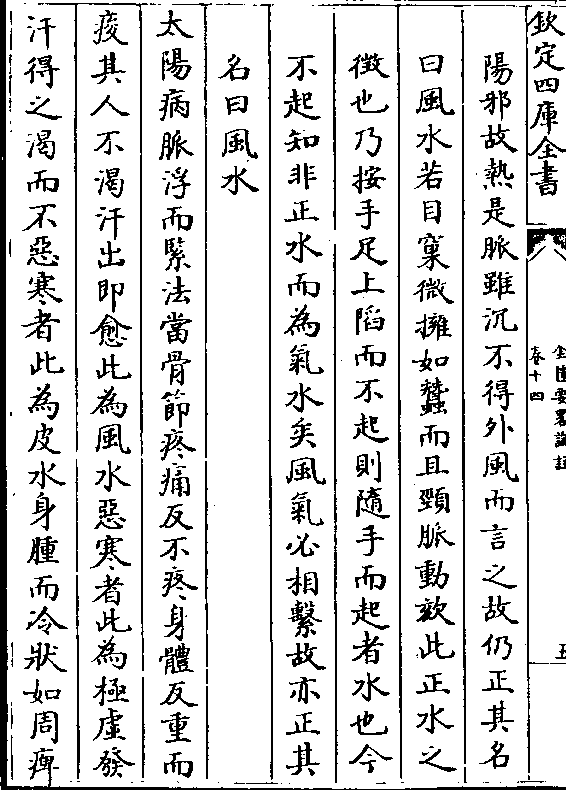 欽定四庫全書
金匱要略論註
卷十四
五
陽邪故熱是脈雖沉不得外風而言之故仍正其名
曰風水若目窠微擁如蠶而且頸脈動欬此正水之
徵也乃按手足上陷而不起則隨手而起者水也今
不起知非正水而為氣水矣風氣必相繫故亦正其
名曰風水
太陽病脈浮而緊法當骨節疼痛反不疼身體反重而
痠其人不渴汗出即愈此為風水惡寒者此為極虛發
汗得之渴而不惡寒者此為皮水身腫而冷狀如周痺